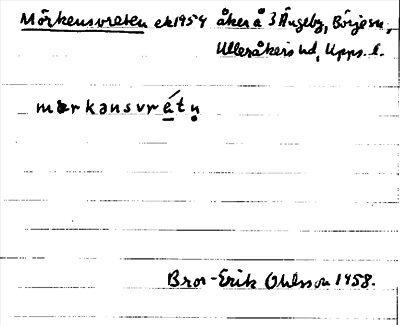 Mörkensvreten ek1954 åker å 3 Ängeby, Börje sn,
Ulleråkers hd, Upps. l.
mərkənsvrétṇ
Bror-Erik Ohlsson 1958.